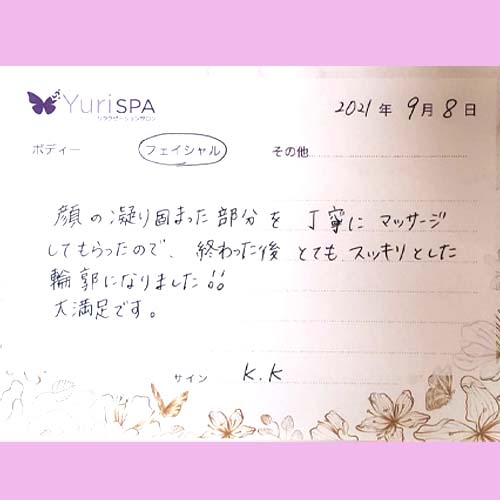 YuriSPA
リラクゼーションサロン
2021年 9月 8日
ボディー フェイシャル その他
顔の凝り固まった部分を 丁寧に マッサージ
してもらったので、終わった後 とても スッキリとした
輪郭になりました!!
大満足です。
サイン K.K